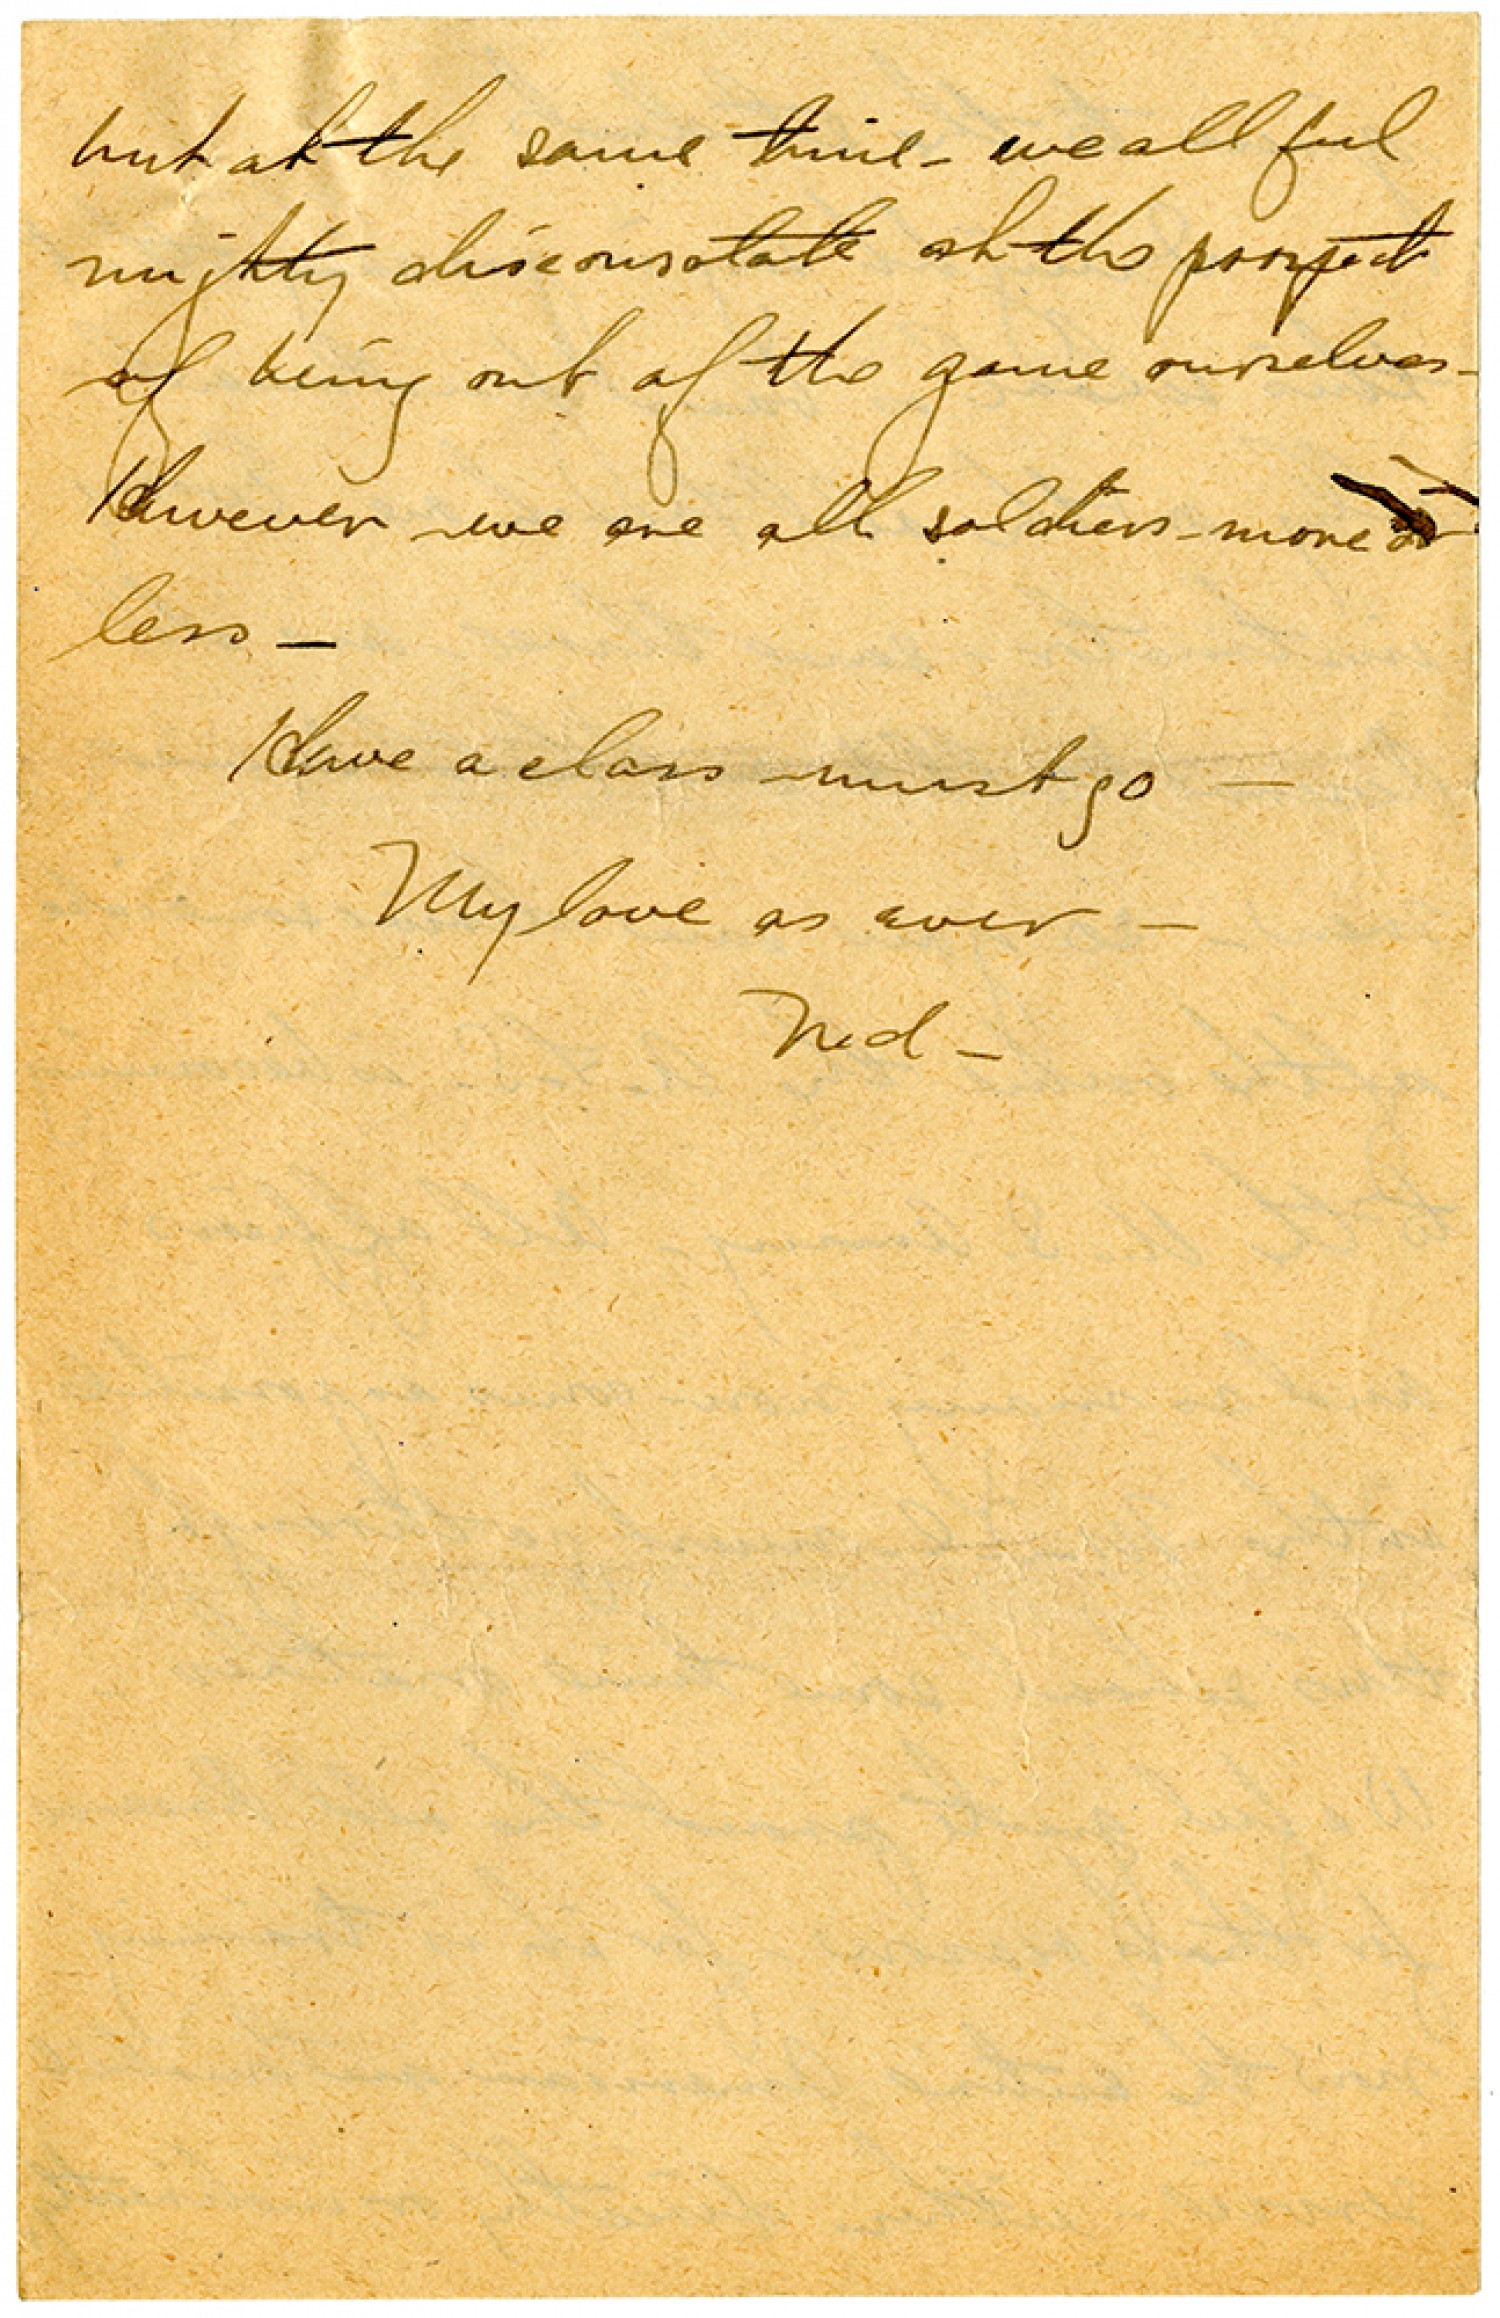 but at the same time - we all feel
mighty disconsolate at the prospect
of being out of the game ourselves -
However we are all soldiers - more or
less -
Have a class must go -
My love as ever -
Ned -